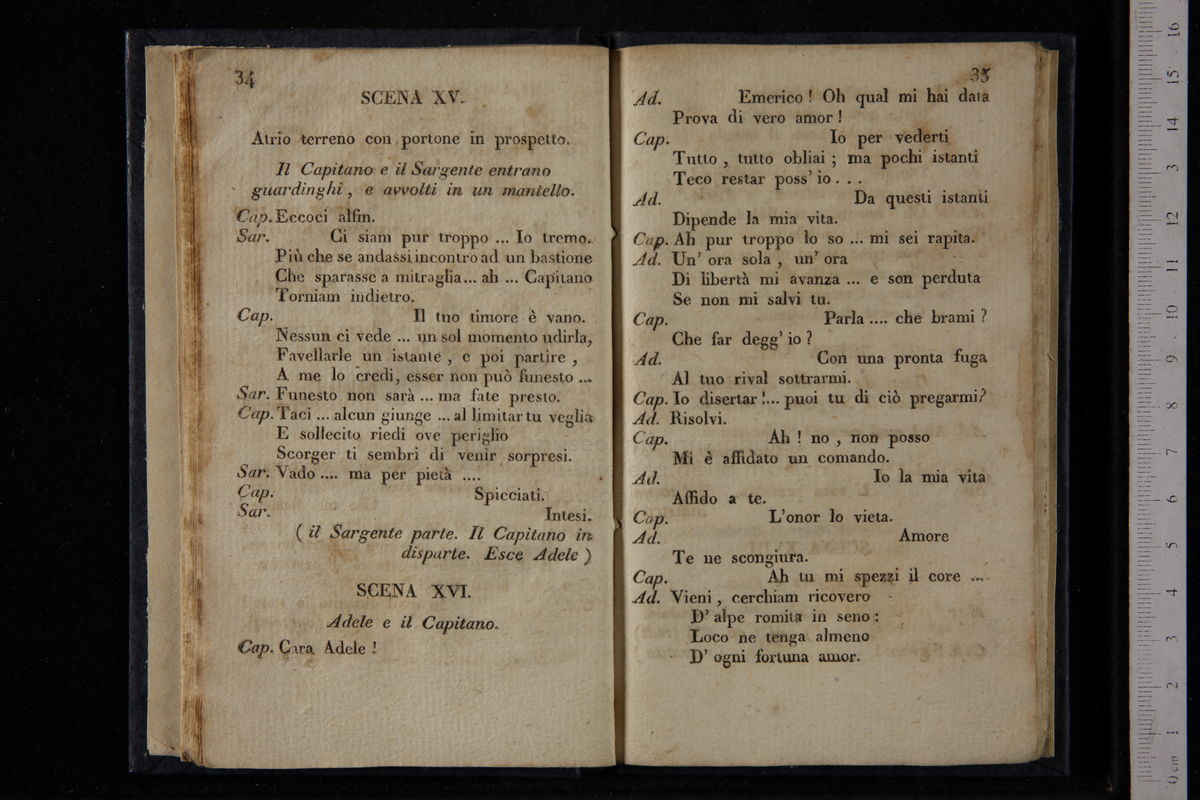 34
SCENA XV.
Atrio terreno con portone in prospetto.
Il Capitano e il Sargente entrano
guardinghi, e avvolti in un mantello.
Cap. Eccoci alfin.
Sar. Ci siam pur troppo ... Io tremo.
Più che se andassi incontro ad un bastione
Che sparasse a mitraglia... ah ... Capitano
Torniam indietro.
Cap. Il tuo timore è vano.
Nessun ci vede ... un sol momento udirla,
Favellarle un istante, e poi partire,
A me lo credi, esser non può funesto ...
Sar. Funesto non sarà ... ma fate presto.
Cap. Taci ... alcun giunge ... al limitar tu veglia
E sollecito riedi ove periglio
Scorger ti sembri di venir sorpresi.
Sar. Vado .... ma per pietà ....
Cap. Spicciati.
Sar. Intesi.
( il Sargente parte. Il Capitano in
disparte. Esce Adele )
SCENA XVI.
Adele e il Capitano.
Cap. Cara Adele !
35
Ad. Emerico ! Oh qual mi hai data
Prova di vero amor !
Cap. Io per vederti
Tutto , tutto obliai ; ma pochi istanti
Teco restar poss' io . . .
Ad. Da questi istanti
Dipende la mia vita.
Cap. Ah pur troppo lo so ... mi sei rapita.
Ad. Un' ora sola , un' ora
Di libertà mi avanza ... e son perduta
Se non mi salvi tu.
Cap. Parla .... che brami ?
Che far degg' io ?
Ad. Con una pronta fuga
Al tuo rival sottrarmi.
Cap. Io disertar !... puoi tu di ciò pregarmi?
Ad. Risolvi.
Cap. Ah ! no , non posso
Mi è affidato un comando.
Ad. Io la mia vita
Affido a te.
Cap. L'onor lo vieta.
Ad. Amore
Te ne scongiura.
Cap. Ah tu mi spezzi il core ...
Ad. Vieni , cerchiam ricovero
D' alpe romita in seno :
Loco ne tenga almeno
D' ogni fortuna amor.
0 cm 1 2 3 4 5 6 7 8 9 10 11 12 13 14 15 16